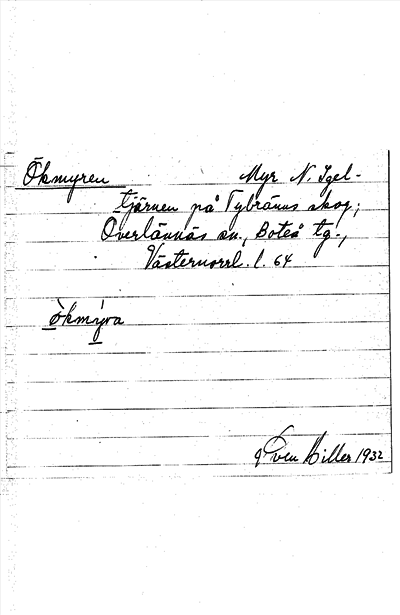 Ökmyren Myr N. Igel-
tjärnen på Tybränns skog;
Överlännäs sn., Boteå tg.,
Västernorrl. l. 64
ökmýra
Sven Hiller 1932